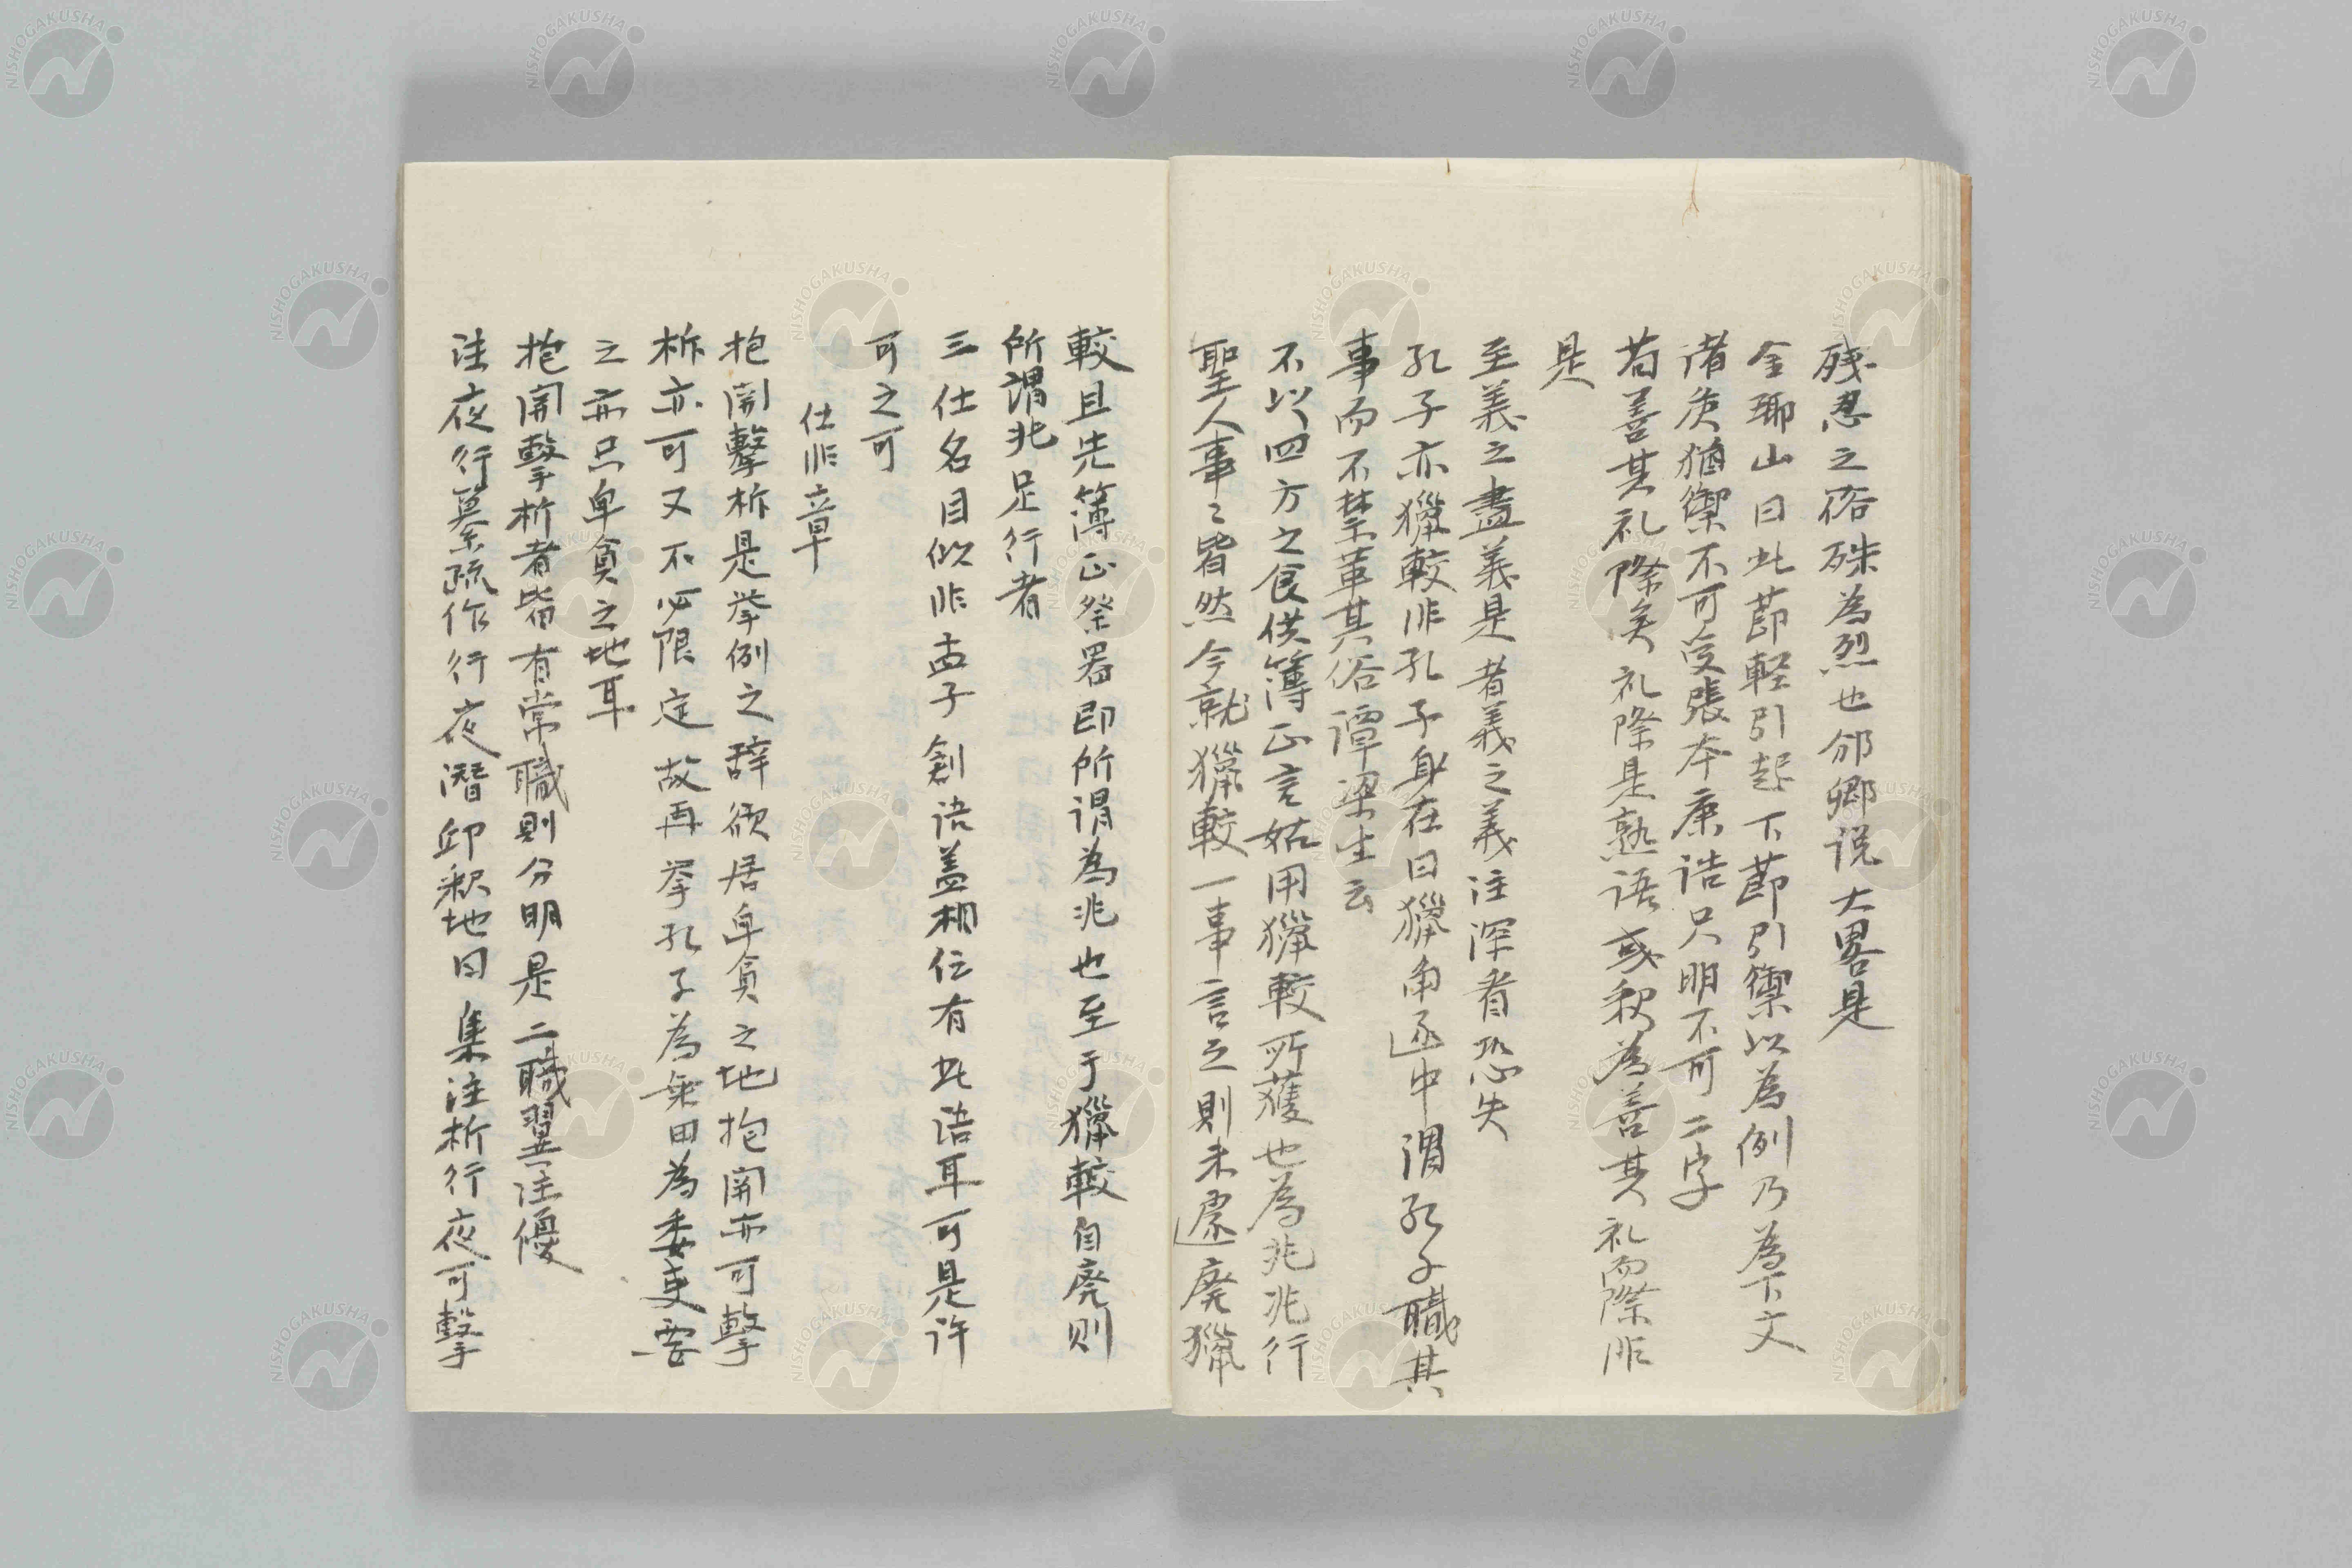 残忍之俗殊為烈也邠卿説大畧是
金瑘山曰此莭軽引起下莭引禦以為例乃為下文
诸矦猶禦不可受張本康诰只明不可二字
若善其礼際矣礼際是熟语或釈為善其礼而際非
是
至義之盡義是者義之義注深看恐失
孔子亦獵較非孔子身在曰獵角逐中謂孔子職其
事而不禁革其俗譚梁生云
不以四方之食供簿正言姑用獵較所獲也為兆兆行
聖人事〻皆然今就獵較一事言之則未遽廃獵
較且先簿正祭器即所謂為兆也至于獵較自廃則
所謂兆足行者
三仕名目似非孟子創语盖相伝有此语耳可是许
可之可
仕非章
抱関擊柝是挙例之辞欲居卑貧之地抱関亦可擊
柝亦可又不必限定故再挙孔子為乗田為委吏要
之亦只卑貧之地耳
抱関擊柝者皆有常職則分明是二職翼注優
注夜行纂疏作行夜潛邱釈地曰集注柝行夜可擊